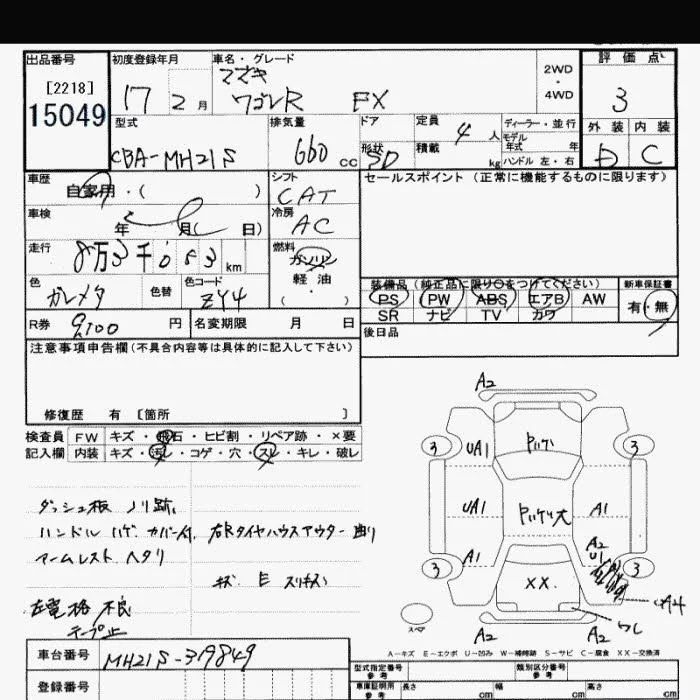 出品番号 初度登録年月 車名・グレード 評価点
[2218] マツダ 2WD
15049 17 2月 ワゴンR FX 4WD 3
型式 排気量 ドア 定員 4人 ディーラー・並行 外装 内装
CBA-MH21S 660cc 形状 5D 積載 kg モデル年式 年 D C
ハンドル 左・右
車歴 自家用・( ) シフト CAT セールスポイント(正常に機能するものに限ります)
車検 年 月( 日) 冷房 AC
走行 8万3千083km 燃料 ガソリン
軽油
( )
色 ガンメタ 色替 色コード ZY4
装備品(純正品に限り○をつけてください) 新車保証書
PS PW ABS エアB AW 有・無
SR ナビ TV カワ
R券 9,100円 名変期限 月 日 後日品
注意事項申告欄(不具合内容等は具体的に記入して下さい)
修復歴 有 [箇所 ]
検査員 FW キズ・飛石・ヒビ割・リペア跡・×要
記入欄 内装 キズ・汚レ・コゲ・穴・スレ・キレ・破レ
ダッシュ板 ノリ跡
ハンドル ハゲ カバー付 右Rタイヤハウスアウター曲り
アームレスト ヘタリ
キズ E スリキズ
左電格 不良
テープ止
A2
3 UA1 3
UA1 A1
A1 A2
U1
3 XX 3
A4
ワレ
スペア A2 A2
A-キズ E-エクボ U-凹み W-補修跡 S-サビ C-腐食 XX-交換済
車台番号 MH21S-319849 型式指定番号 参考 類別区分番号 参考
登録番号 車庫証明用 参考 長さ cm 幅 cm 高さ cm